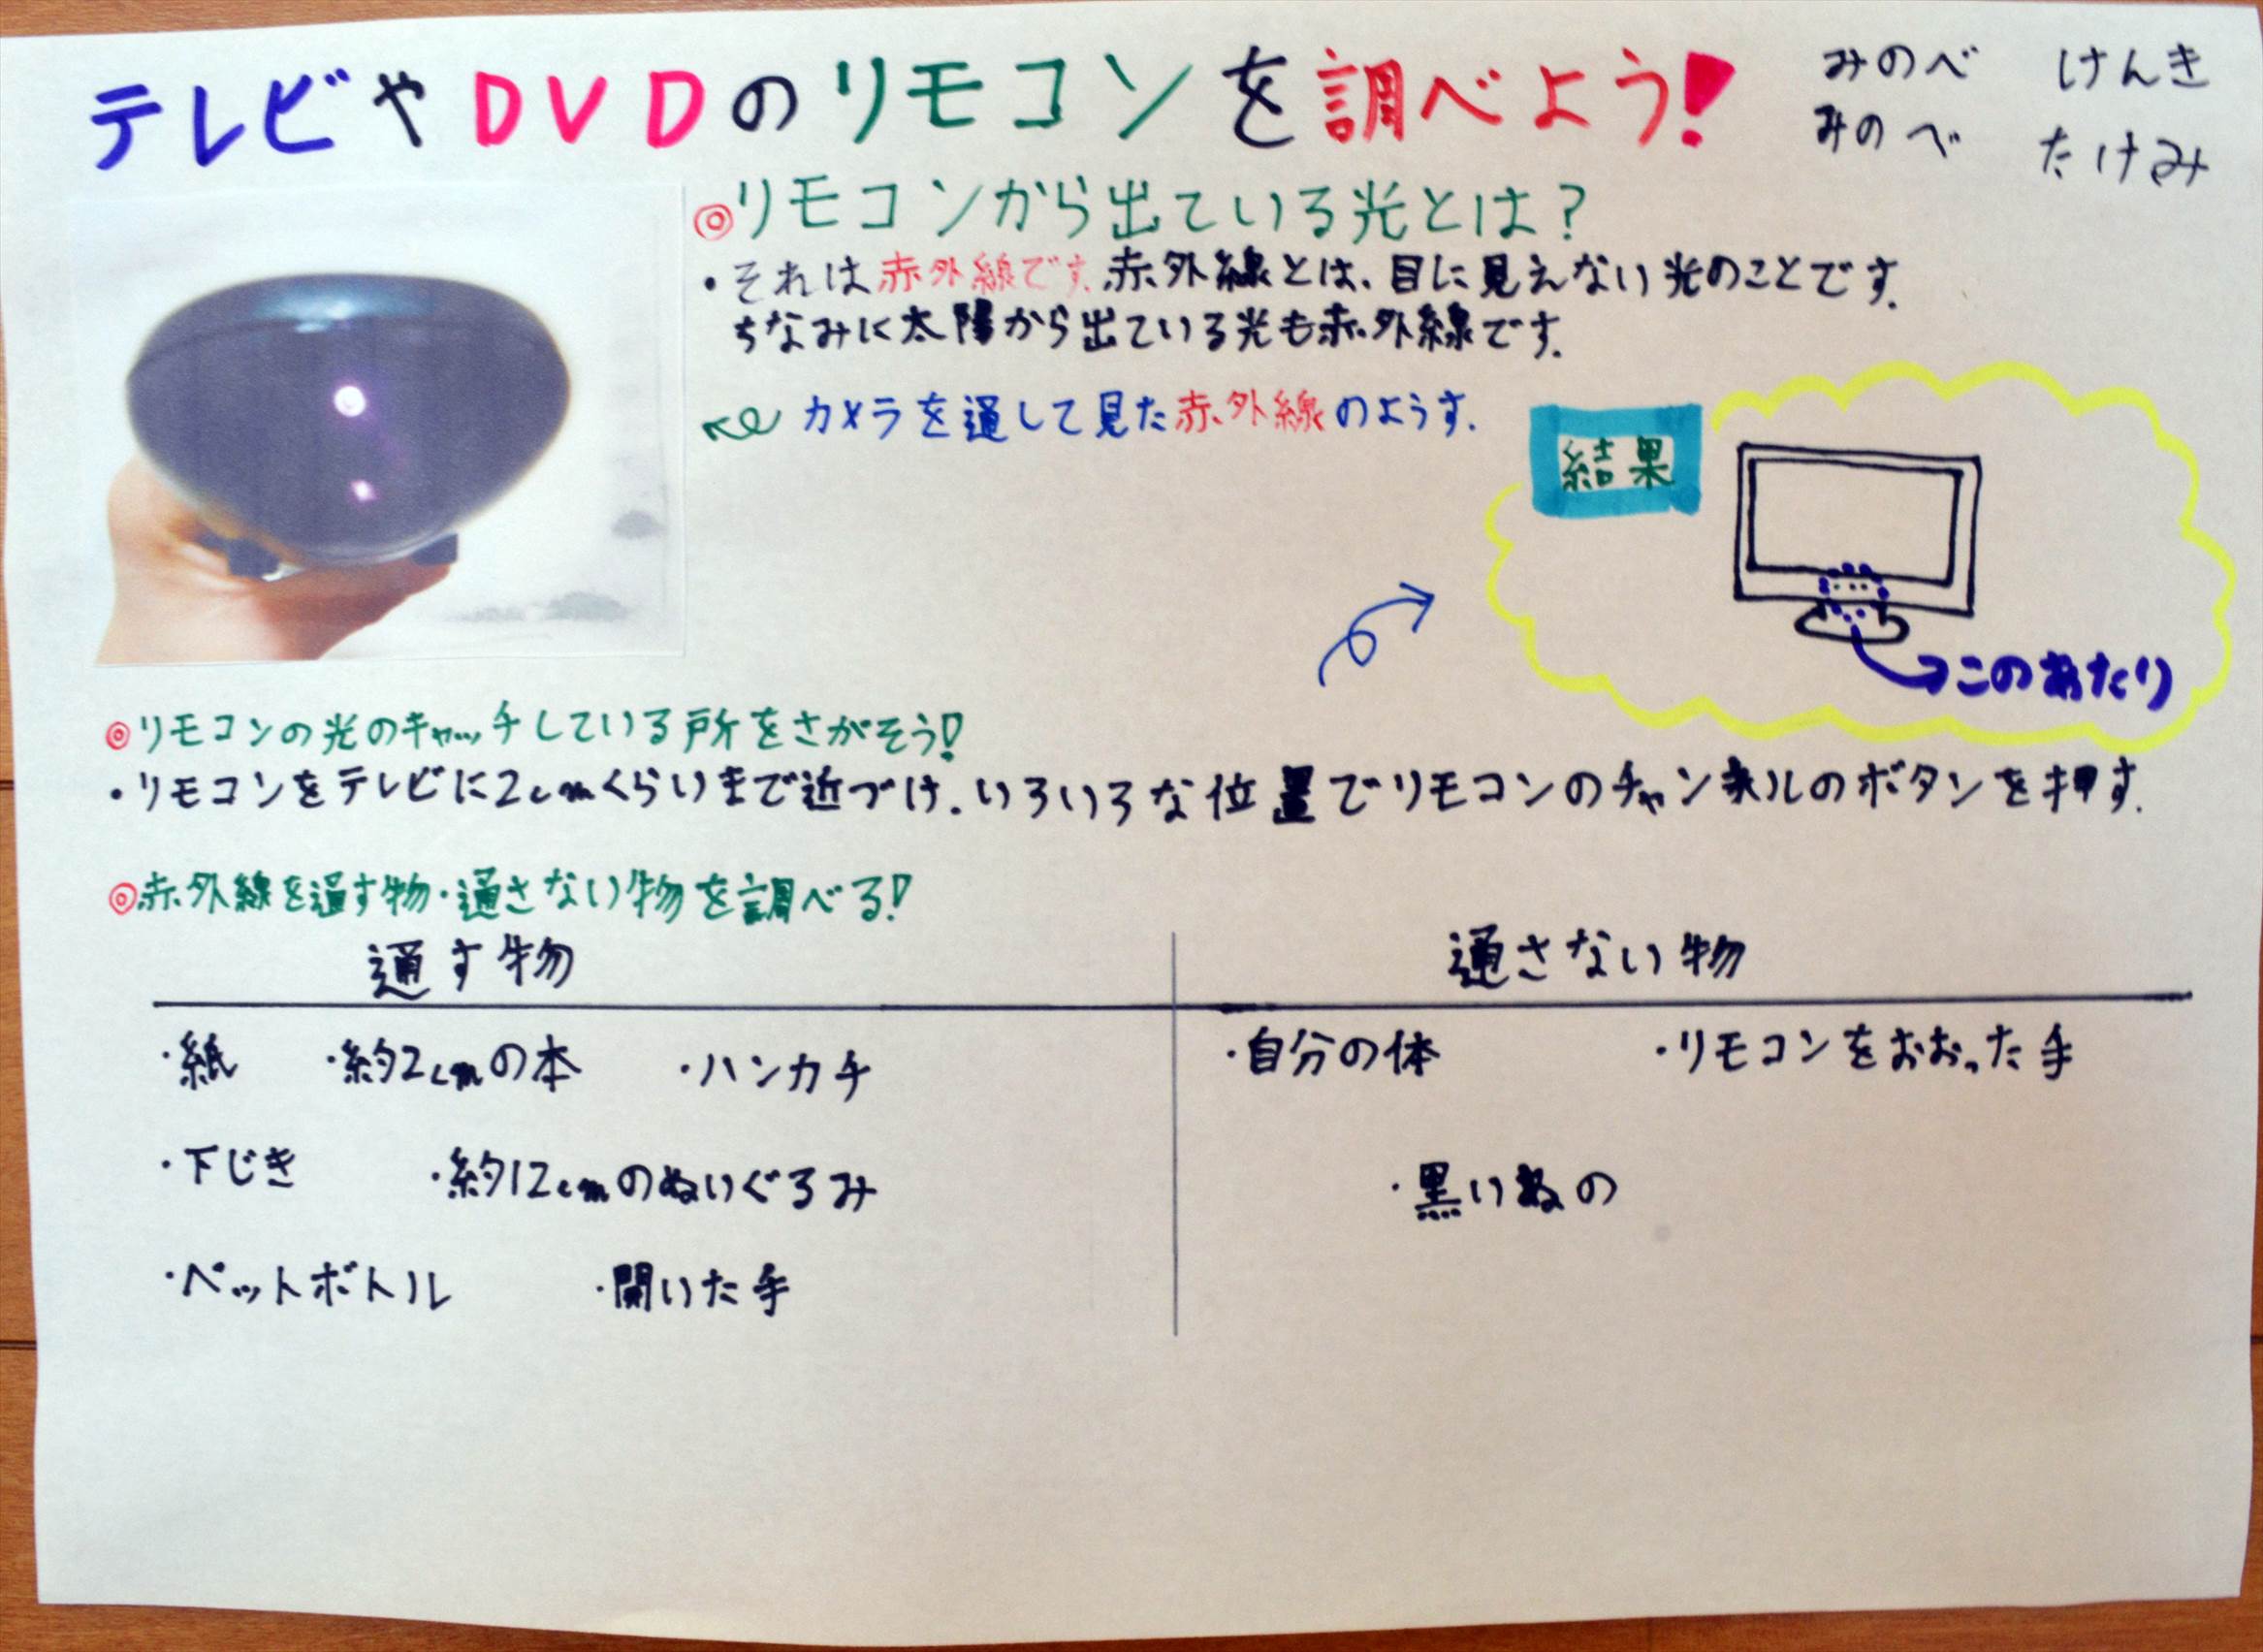 テレビやDVDのリモコンを調べよう!
みのべ けんき
みのべ たけみ
◎リモコンから出ている光とは?
・それは赤外線です。赤外線とは、目に見えない光のことです。
ちなみに太陽から出ている光も赤外線です。
カメラを通して見た赤外線のようす。
結果
→このあたり
◎リモコンの光のキャッチしている所をさがそう!
・リモコンをテレビに2cmくらいまで近づけ、いろいろな位置でリモコンのチャンネルのボタンを押す。
◎赤外線を通す物・通さない物を調べる!
通す物 通さない物
・紙 ・約2cmの本 ・ハンカチ ・自分の体 ・リモコンをおおった手
・下じき ・約12cmのぬいぐるみ ・黒いぬの
・ペットボトル ・開いた手